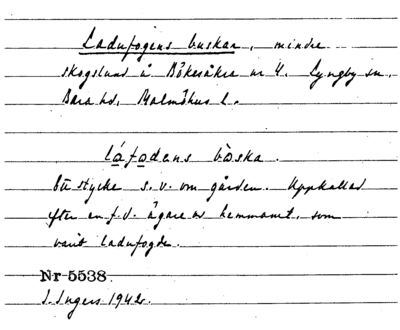 Ladufogens buskar, mindre
skogslund å Bökesåkra nr 4. Lyngby sn,
Bara hd, Malmöhus l.
låfodens bòska.
Ett stycke s.v. om gården. Uppkallad
efter en f.d. ägare av hemmanet, som
varit ladufogde.
Nr 5538
I. Ingers 1942.